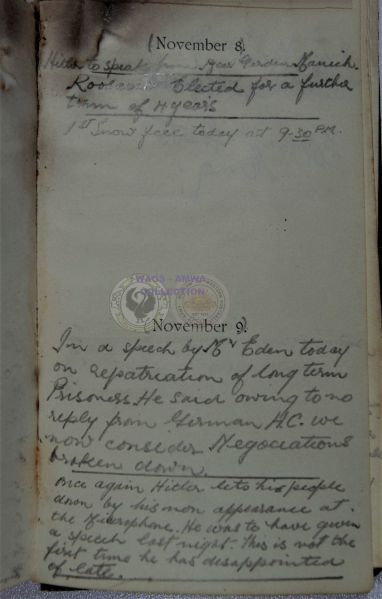 (November 8.)
Hitler to speak from Beer Garden Munich.
Roosevelt Elected for a further
term of 4 years
1st Snow fell today at 9-30 P.M.
WAGS - AMWA
COLLECTION
(November 9.)
In a speech by Mr Eden today
on repatriation of long term
Prisoners He said owing to no
reply from German H.C. we
now consider Negociations
broken down.
once again Hitler lets his people
down by his non appearance at
the Microphone. He was to have given
a speech last night. This is not the
first time he has disappointed
of late.